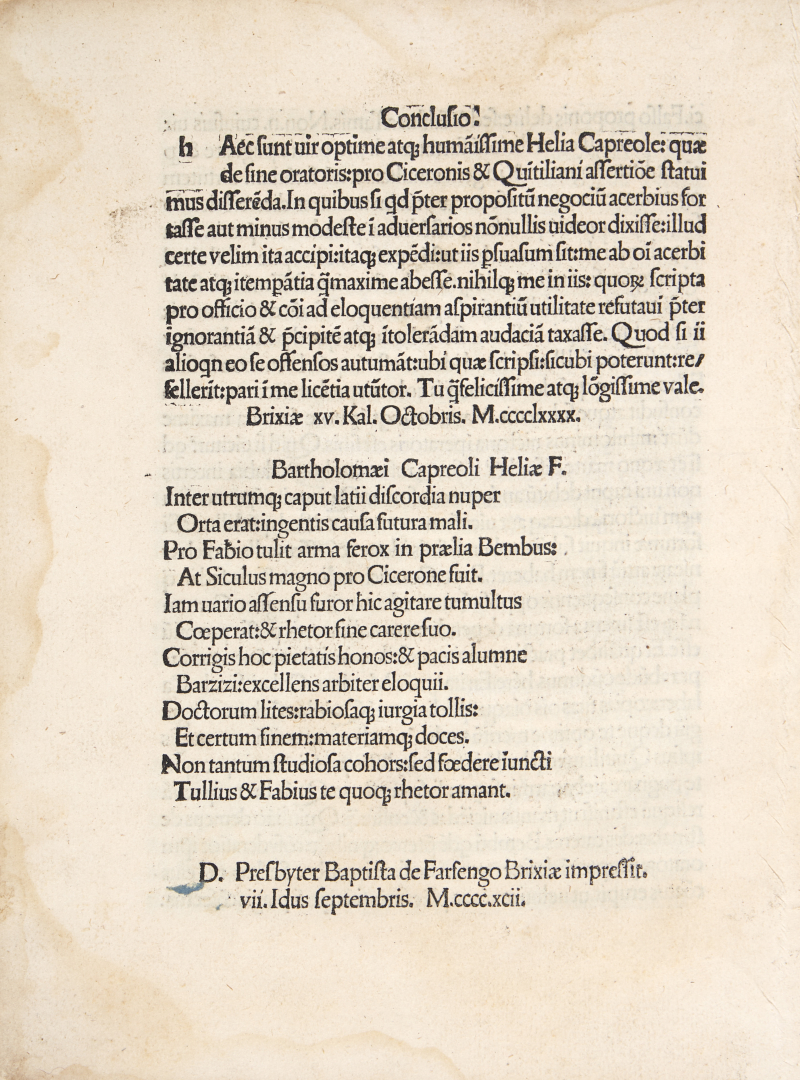 Conclusio.
h Aec sunt uir optime atqꝫ humāissime Helia Capreole: quæ
de fine oratoris: pro Ciceronis & Quītiliani assertiōe statui
mus disserēda. In quibus si qd p̄ter propositū negociū acerbius for
tasse aut minus modeste ī aduersarios nōnullis uideor dixisse: illud
certe velim ita accipi: itaqꝫ expēdi: ut iis p̱suasum sit: me ab oī acerbi
tate atqꝫ itempātia q̄maxime abesse. nihilqꝫ me in iis: quoꝝ scripta
pro officio & cōi ad eloquentiam aspirantiū utilitate refutaui p̄ter
ignorantiā & p̄cipitē atqꝫ ītolerādam audaciā taxasse. Quod si ii
alioqn eo se offensos autumāt: ubi quæ scripsi: sicubi poterunt: re/
fellerīt: pari ī me licētia utūtor. Tu q̄felicissime atqꝫ lōgissime vale.
Brixiæ xv. Kal. Octobris. M.cccclxxxx.
Bartholomæi Capreoli Heliæ F.
Inter utrumqꝫ caput latii discordia nuper
Orta erat: ingentis causa futura mali.
Pro Fabio tulit arma ferox in prælia Bembus:
At Siculus magno pro Cicerone fuit.
Iam uario assensu furor hic agitare tumultus
Cœperat: & rhetor fine carere suo.
Corrigis hoc pietatis honos: & pacis alumne
Barzizi: excellens arbiter eloquii.
Doctorum lites: rabiosaqꝫ iurgia tollis:
Et certum finem: materiamqꝫ doces.
Non tantum studiosa cohors: sed fœdere iuncti
Tullius & Fabius te quoqꝫ rhetor amant.
D. Presbyter Baptista de Farfengo Brixiæ impressit.
vii. Idus septembris. M.cccc.xcii.